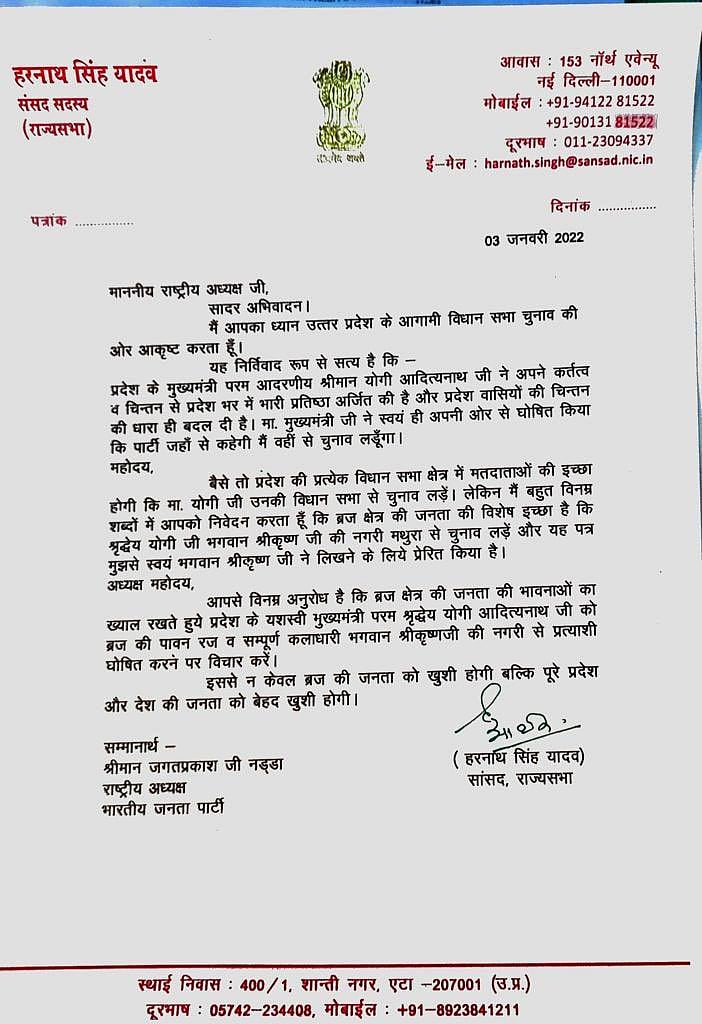 हरनाथ सिंह यादव
संसद सदस्य
(राज्यसभा)
आवास : 153 नॉर्थ एवेन्यू
नई दिल्ली–110001
मोबाईल : +91-94122 81522
+91-90131 81522
दूरभाष : 011-23094337
ई–मेल : harnath.singh@sansad.nic.in
पत्रांक ................
दिनांक ................
03 जनवरी 2022
माननीय राष्ट्रीय अध्यक्ष जी,
सादर अभिवादन।
मैं आपका ध्यान उत्तर प्रदेश के आगामी विधान सभा चुनाव की
ओर आकृष्ट करता हूँ।
यह निर्विवाद रूप से सत्य है कि –
प्रदेश के मुख्यमंत्री परम आदरणीय श्रीमान योगी आदित्यनाथ जी ने अपने कर्तत्व
व चिन्तन से प्रदेश भर में भारी प्रतिष्ठा अर्जित की है और प्रदेश वासियों की चिन्तन
की धारा ही बदल दी है। मा. मुख्यमंत्री जी ने स्वयं ही अपनी ओर से घोषित किया
कि पार्टी जहाँ से कहेगी मैं वहीं से चुनाव लडूँगा।
महोदय,
बैसे तो प्रदेश की प्रत्येक विधान सभा क्षेत्र में मतदाताओं की इच्छा
होगी कि मा. योगी जी उनकी विधान सभा से चुनाव लड़ें। लेकिन मैं बहुत विनम्र
शब्दों में आपको निवेदन करता हूँ कि ब्रज क्षेत्र की जनता की विशेष इच्छा है कि
श्रृद्धेय योगी जी भगवान श्रीकृष्ण जी की नगरी मथुरा से चुनाव लड़ें और यह पत्र
मुझसे स्वयं भगवान श्रीकृष्ण जी ने लिखने के लिये प्रेरित किया है।
अध्यक्ष महोदय,
आपसे विनम्र अनुरोध है कि ब्रज क्षेत्र की जनता की भावनाओं का
ख्याल रखते हुये प्रदेश के यशस्वी मुख्यमंत्री परम श्रृद्धेय योगी आदित्यनाथ जी को
ब्रज की पावन रज व सम्पूर्ण कलाधारी भगवान श्रीकृष्णजी की नगरी से प्रत्याशी
घोषित करने पर विचार करें।
इससे न केवल ब्रज की जनता को खुशी होगी बल्कि पूरे प्रदेश
और देश की जनता को बेहद खुशी होगी।
सम्मानार्थ –
श्रीमान जगतप्रकाश जी नड्डा
राष्ट्रीय अध्यक्ष
भारतीय जनता पार्टी
( हरनाथ सिंह यादव)
सांसद, राज्यसभा
स्थाई निवास : 400/1, शान्ती नगर, एटा –207001 (उ.प्र.)
दूरभाष : 05742-234408, मोबाईल : +91-8923841211